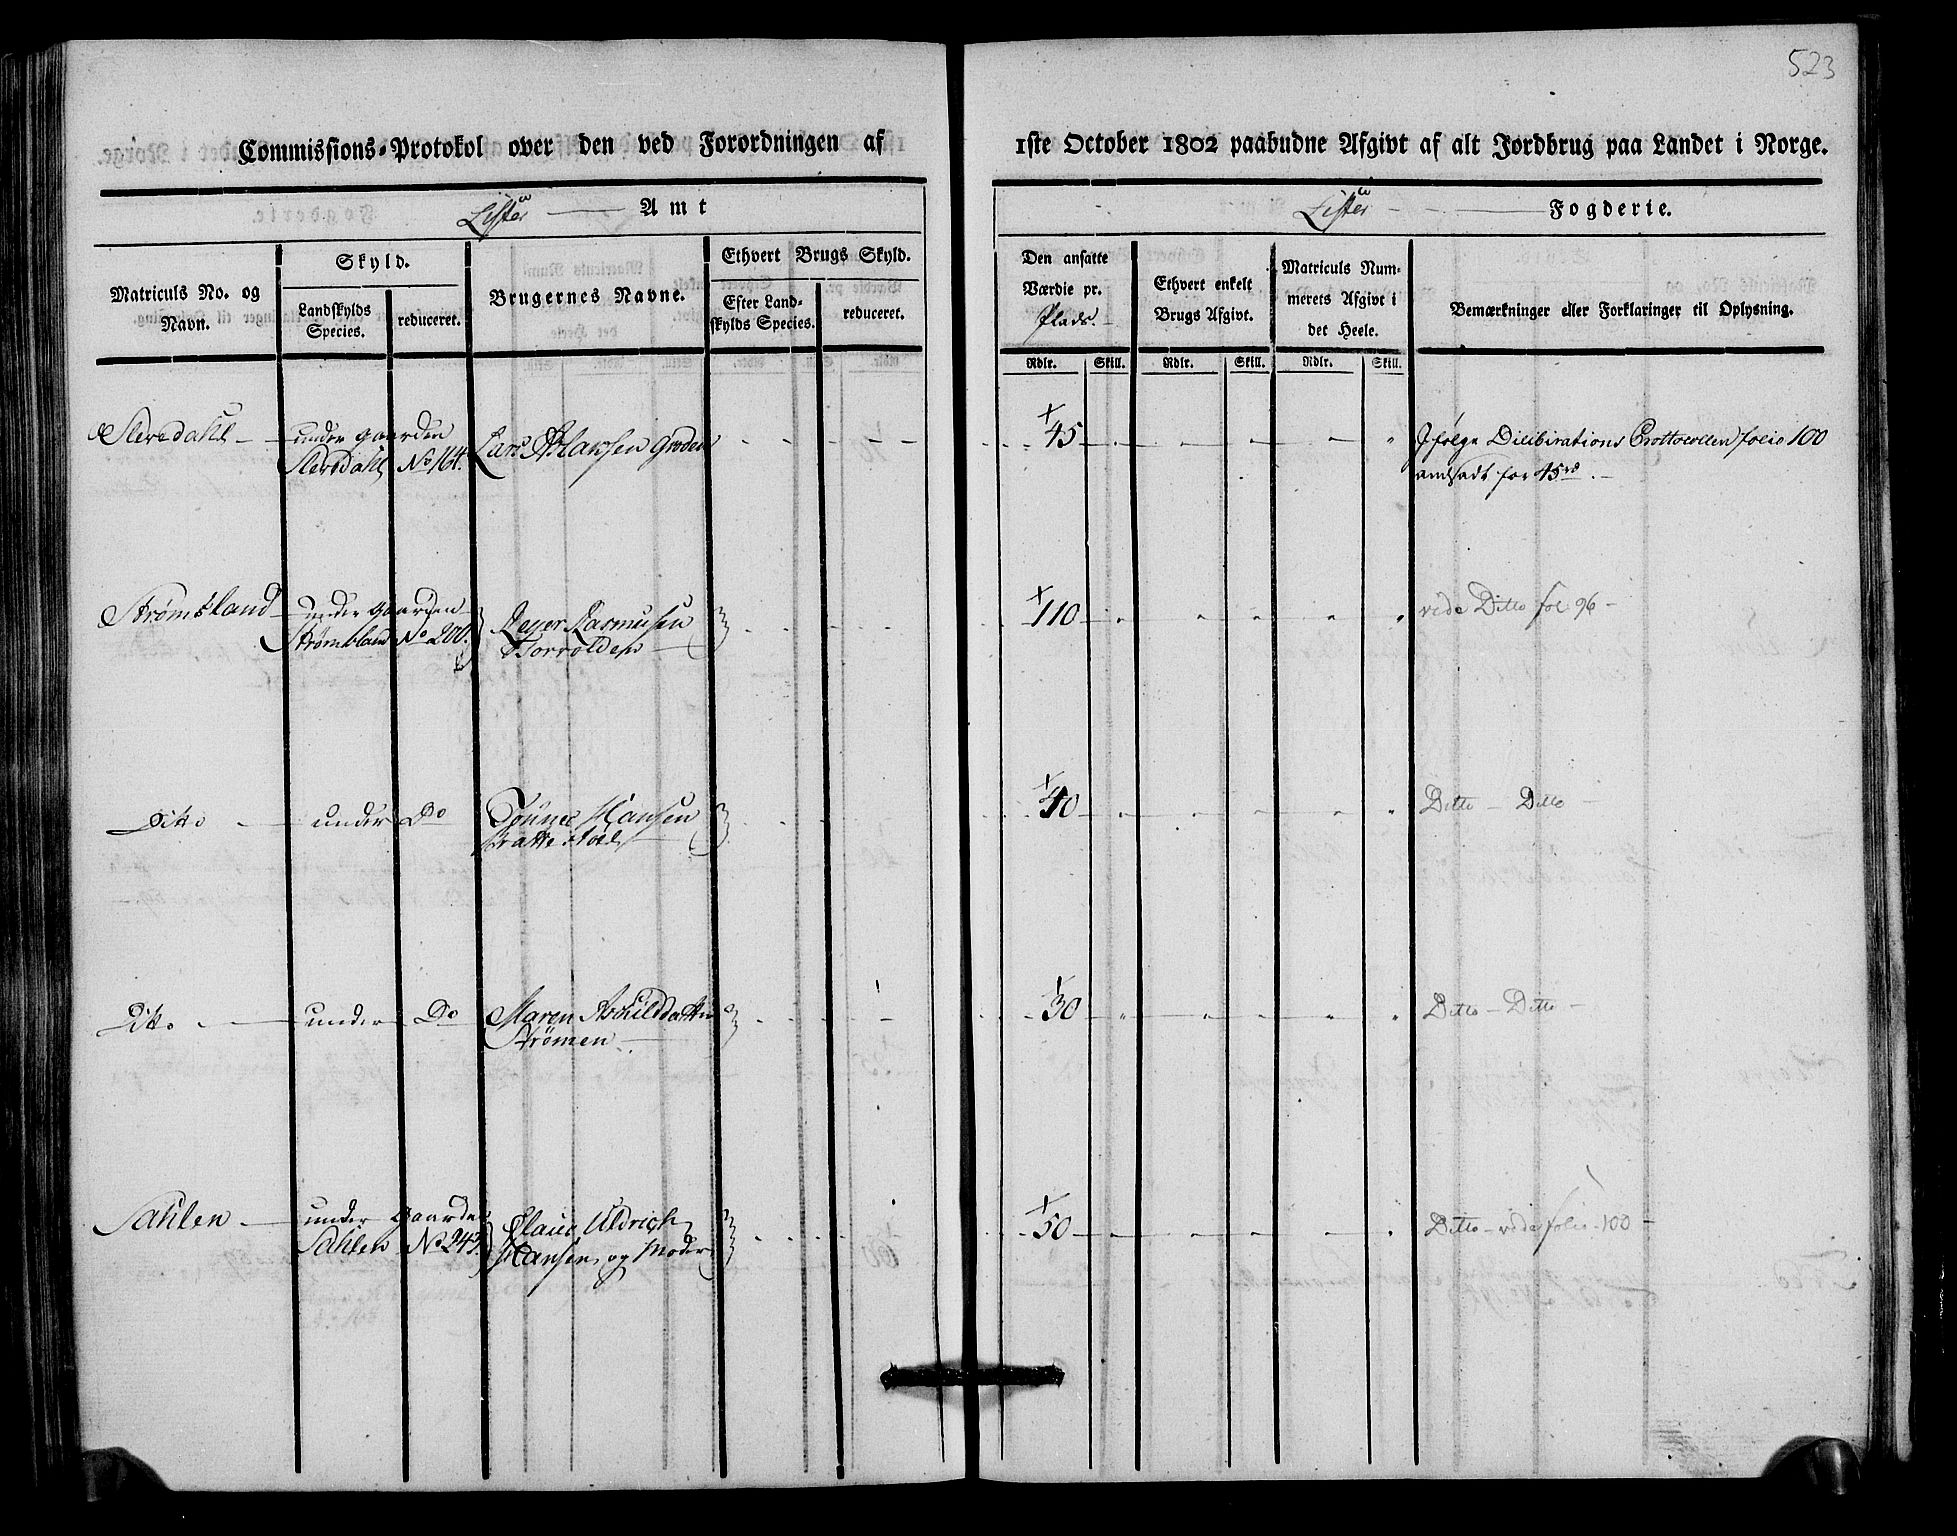 523
Commissions-Protokol over den ved Forordningen af
1ste October 1802 paabudne Afgivt af alt Jordbrug paa Landet i Norge.
Lister Amt
Lister Fogderie.
Matriculs No. og Navn.
Skyld.
Landskylds Species.
reduceret.
Brugernes Navne.
Ethvert Brugs Skyld.
Efter Landskylds Species.
reduceret.
Den ansatte Værdie pr. Plads.
Ethvert enkelt Brugs Afgivt.
Matriculs Nummerets Afgivt i det Heele.
Bemærkninger eller Forklaringer til Oplysning.
Rdlr. Skill. Rdlr. Skill. Rdlr. Skill.
Slevedahl under Gaarden Lars Hansen Groden 45 Ifølge Dilibirations Prottocollen folio 100
Slevedahl No 164. andsadt for 45 rd
Strømsland under Gaarden Reyer Rasmusen 110 vide Ditto fol 96
Strømsland No 200. Torvolden
Ditto under Do Tønnes Hansen 40 Ditto Ditto
Ditto under Do Maren 30 Ditto Ditto
Strømen
Sahlen under Gaarden Claus Uldrich 50 Ditto vide folio 100
Sahlen No 243. Hansen og Moder